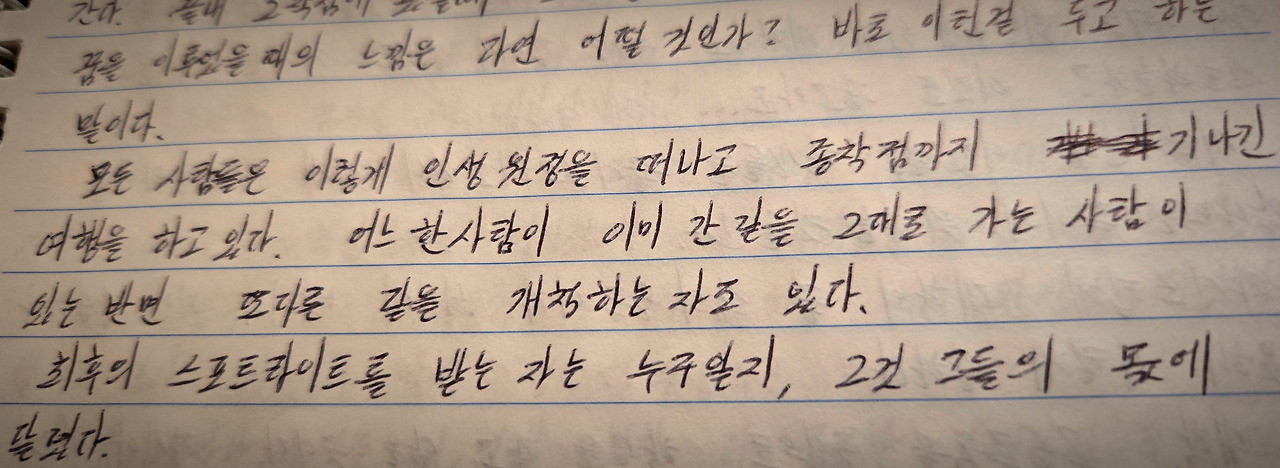 간다.
꿈을 이루었을 때의 느낌은 과연 어떨 것인가? 바로 이런걸 두고 하는
말이다.
모든 사람들은 이렇게 인생 원정을 떠나고 종착점까지 기나긴
여행을 하고 있다. 어느 한사람이 이미 간 길을 그대로 가는 사람이
있는 반면 또다른 길을 개척하는 자도 있다.
최후의 스포트라이트를 받는 자는 누구일지, 그것 그들의 몫에
달렸다.